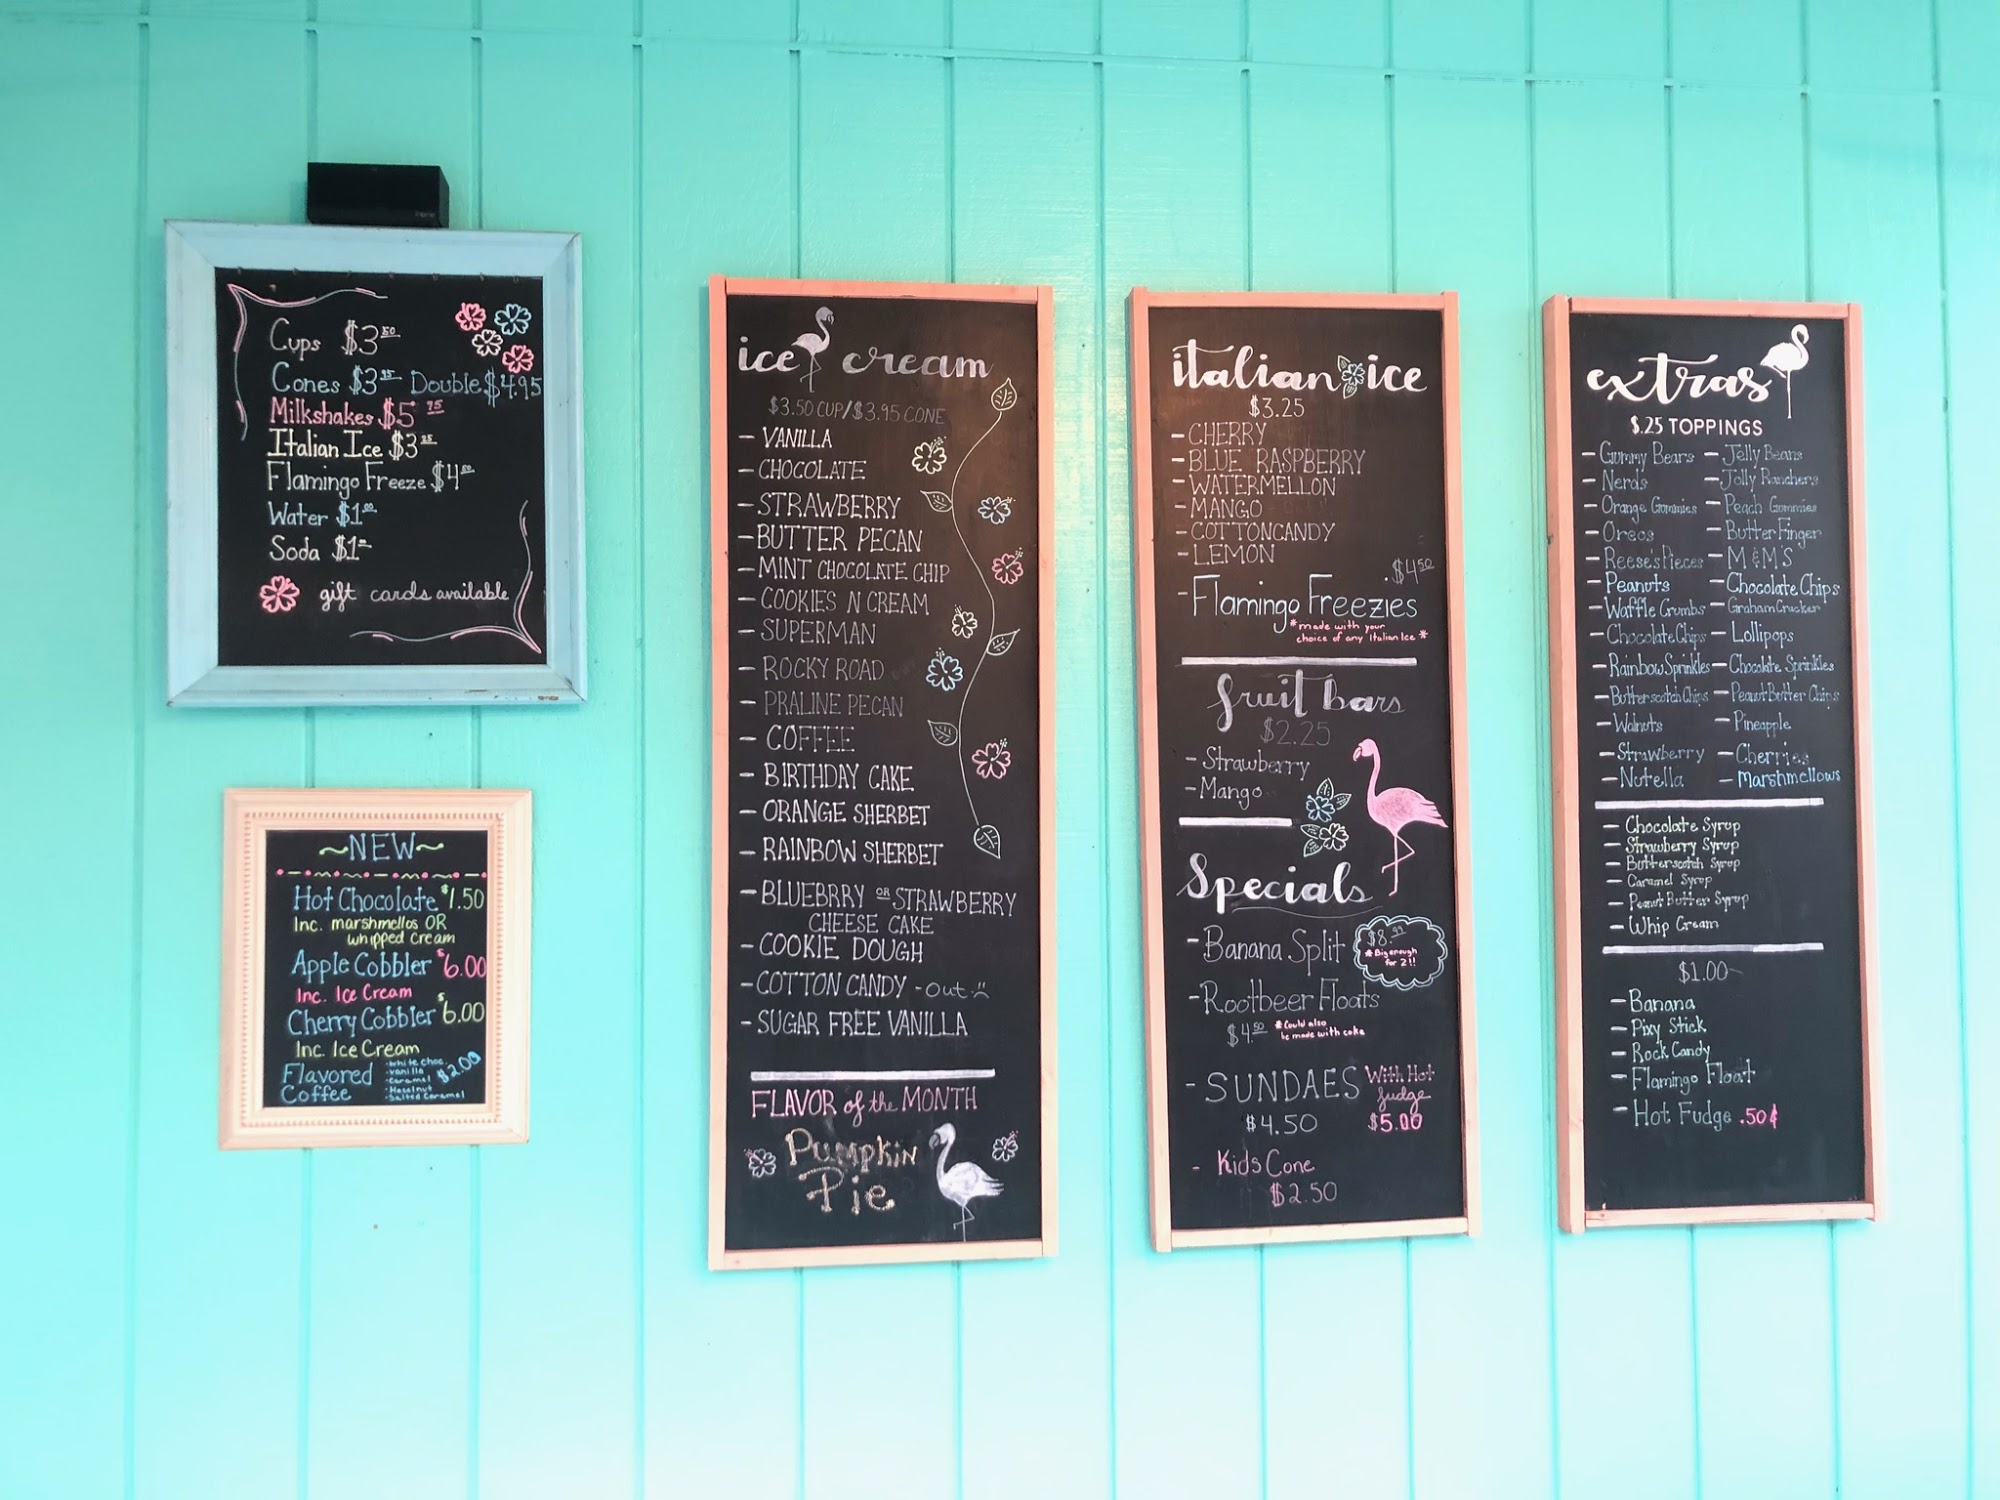 Cups $3.50
Cones $3.95 Double $4.95
Milkshakes $5.75
Italian Ice $3.25
Flamingo Freeze $4.50
Water $1.00
Soda $1
gift cards available
~NEW~
Hot Chocolate $1.50
Inc. marshmellos OR
whipped cream
Apple Cobbler $6.00
Inc. Ice Cream
Cherry Cobbler $6.00
Inc. Ice Cream
Flavored Coffee $2.00
- white choc.
- vanilla
- caramel
- Hazelnut
- Salted Caramel
ice cream
$3.50 CUP/$3.95 CONE
- VANILLA
- CHOCOLATE
- STRAWBERRY
- BUTTER PECAN
- MINT CHOCOLATE CHIP
- COOKIES N CREAM
- SUPERMAN
- ROCKY ROAD
- PRALINE PECAN
- COFFEE
- BIRTHDAY CAKE
- ORANGE SHERBET
- RAINBOW SHERBET
- BLUEBRRY OR STRAWBERRY
CHEESE CAKE
- COOKIE DOUGH
- COTTON CANDY - Out :(
- SUGAR FREE VANILLA
FLAVOR of the MONTH
Pumpkin
Pie
italian ice
$3.25
- CHERRY
- BLUE RASPBERRY
- WATERMELLON
- MANGO
- COTTONCANDY
- LEMON
$4.50
- Flamingo Freezies
* made with your
choice of any Italian Ice *
fruit bars
$2.25
- Strawberry
- Mango
Specials
- Banana Split $8.99
* Big enough
for 2!!
- Rootbeer Floats
$4.50 * Could also
be made with coke
- SUNDAES With Hot
fudge
$4.50 $5.00
- Kids Cone
$2.50
extras
$.25 TOPPINGS
- Gummy Bears - Jelly Beans
- Nerds - Jolly Ranchers
- Orange Gummies - Peach Gummies
- Oreos - Butter Finger
- Reese's Pieces - M & M'S
- Peanuts - Chocolate Chips
- Waffle Crumbs - Graham Cracker
- Chocolate Chips - Lollipops
- Rainbow Sprinkles - Chocolate Sprinkles
- Butterscotch Chips - Peanut Butter Chips
- Walnuts - Pineapple
- Strawberry - Cherries
- Nutella - Marshmellows
- Chocolate Syrup
- Strawberry Syrup
- Butterscotch Syrup
- Caramel Syrup
- Peanut Butter Syrup
- Whip Cream
$1.00
- Banana
- Pixy Stick
- Rock Candy
- Flamingo Float
- Hot Fudge .50¢